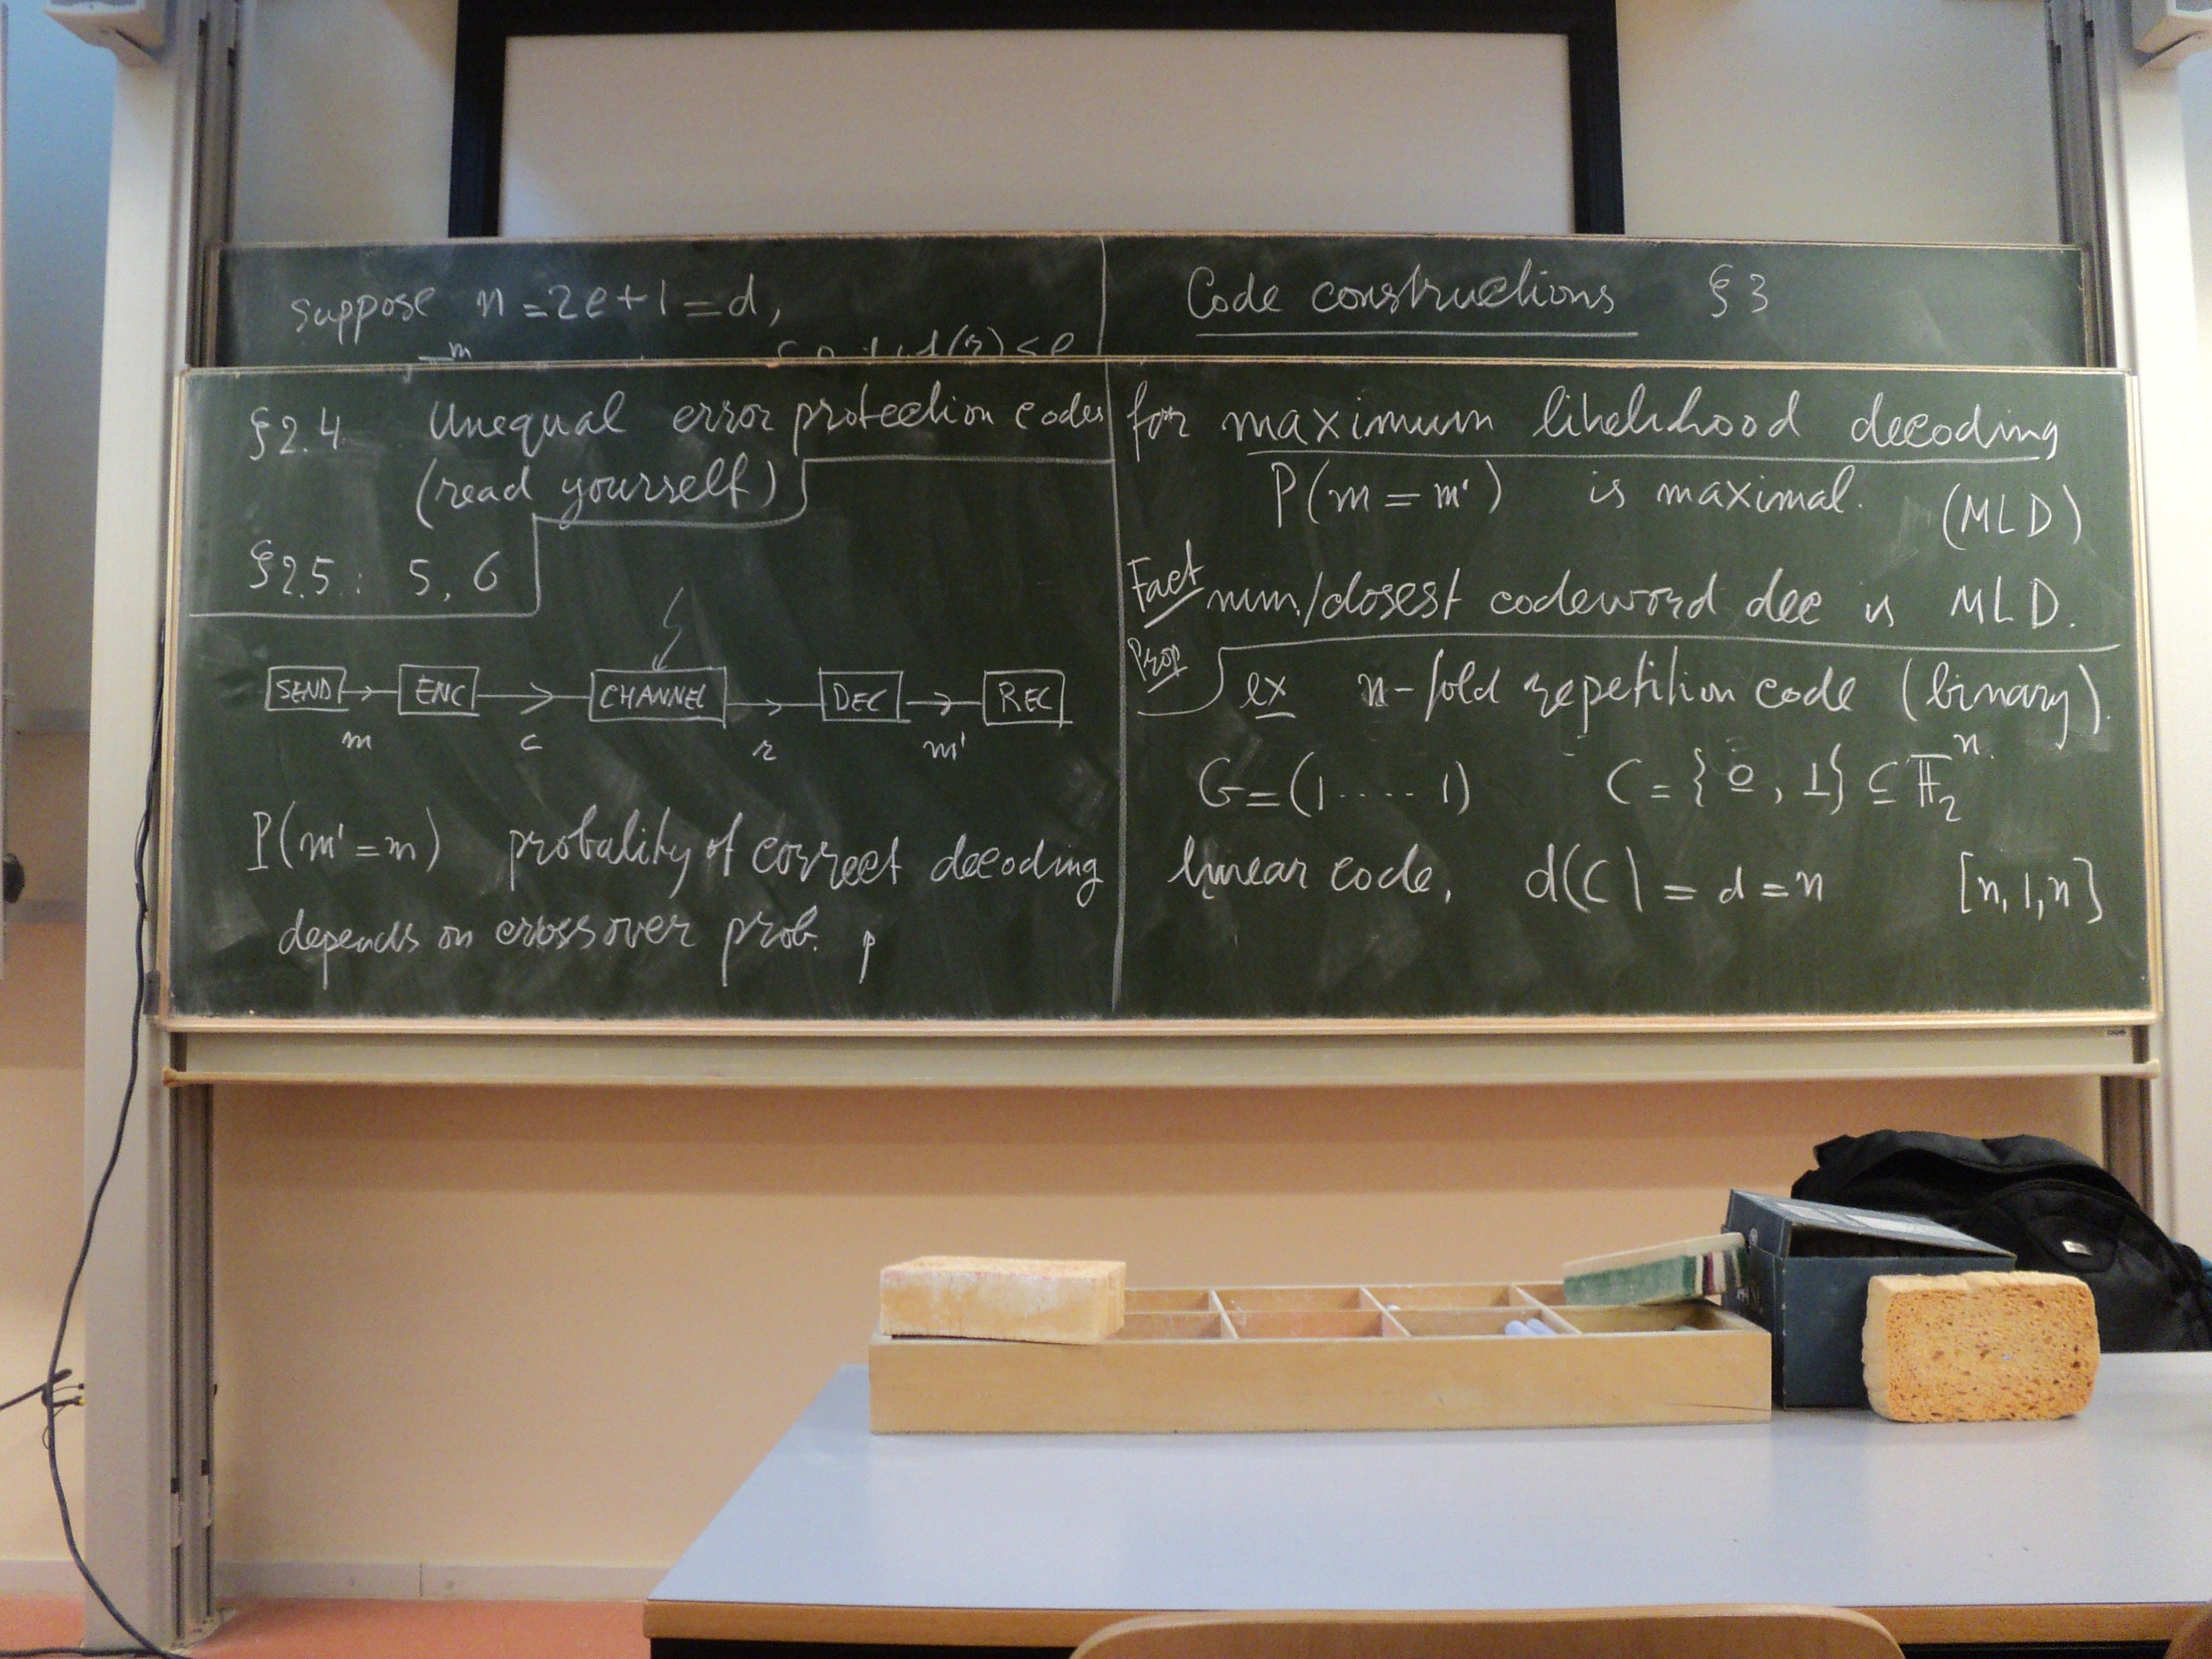 suppose n = 2e+1 = d,
Code constructions §3
§2.4 Unequal error protection codes
(read yourself)
§2.5: 5, 6
SEND ENC CHANNEL DEC REC
m c r m'
P(m' = m) probality of correct decoding
depends on crossover prob. p
for maximum likelihood decoding
P(m = m') is maximal. (MLD)
Fact min/closest codeword dec is MLD.
Prop
ex n-fold repetition code (binary).
G = (1 ..... 1) C = {0, 1} ⊆ 𝔽₂ⁿ
linear code, d(C) = d = n [n, 1, n]